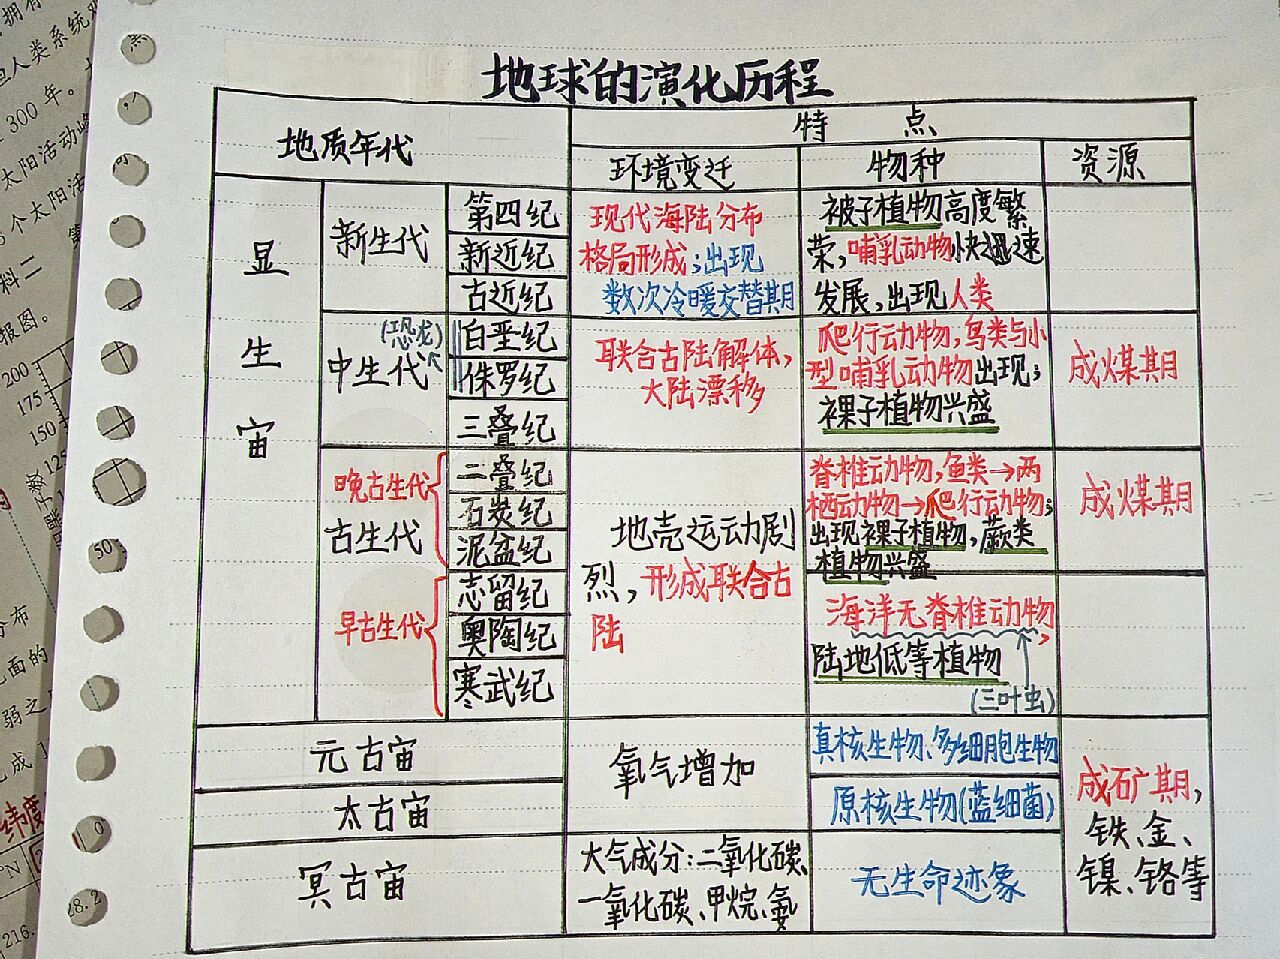 地球的演化历程
地质年代
特 点
环境变迁
物种
资源
显
生
宙
新生代
第四纪
新近纪
古近纪
现代海陆分布
格局形成;出现
数次冷暖交替期
被子植物高度繁
荣,哺乳动物快迅速
发展,出现人类
(恐龙)
中生代
白垩纪
侏罗纪
三叠纪
联合古陆解体,
大陆漂移
爬行动物,鸟类与小
型哺乳动物出现;
裸子植物兴盛
成煤期
晚古生代
古生代
早古生代
二叠纪
石炭纪
泥盆纪
志留纪
奥陶纪
寒武纪
地壳运动剧
烈,形成联合古
陆
脊椎动物,鱼类→两
栖动物→爬行动物;
出现裸子植物,蕨类
植物兴盛
成煤期
海洋无脊椎动物,
陆地低等植物
(三叶虫)
元古宙
太古宙
氧气增加
真核生物、多细胞生物
原核生物(蓝细菌)
冥古宙
大气成分:二氧化碳、
一氧化碳、甲烷、氨
无生命迹象
成矿期,
铁、金、
镍、铬等
人类系统
300年。
太阳活动峰
个太阳活
料二
报图。
200
175
150
125
50
分布
面的
弱之
成
纬度
°N
28.2
216.